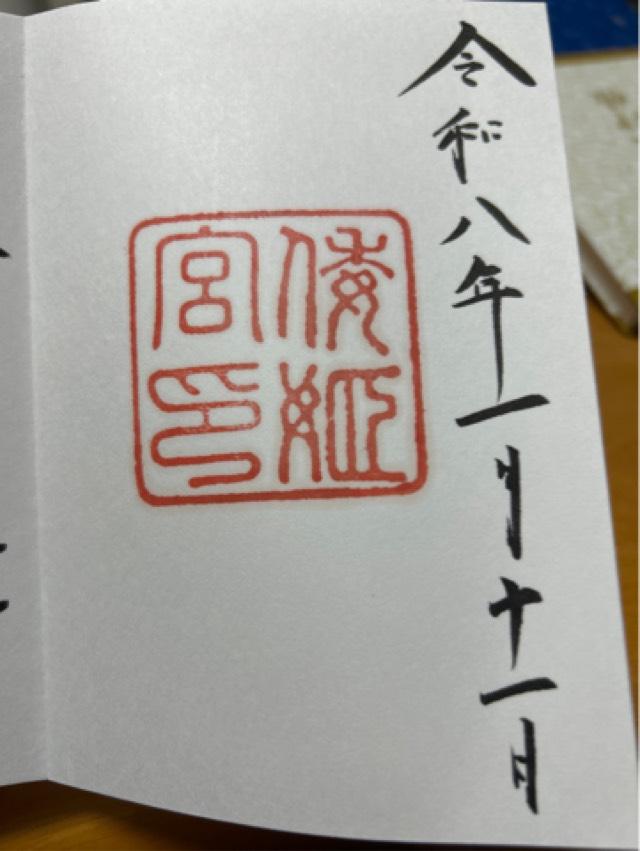 令和八年一月十一日
倭姫
宮印